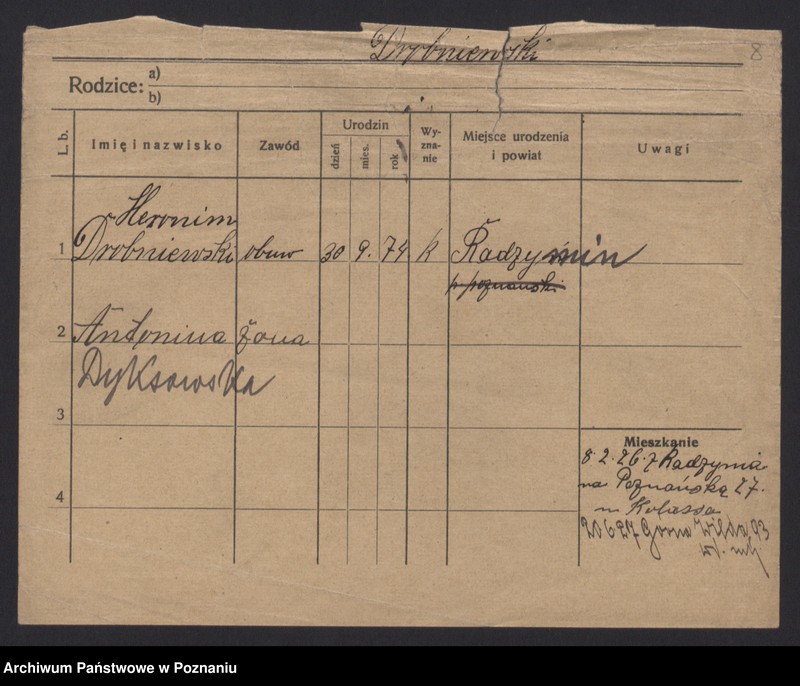 Drobniewski
8
Rodzice: a)
b)
L. b.
Imię i nazwisko
Zawód
Urodzin
dzień
mies.
rok
Wy-
zna-
nie
Miejsce urodzenia
i powiat
Uwagi
1
Heronim
Drobniewski obuw 30 9. 74 k Radzymin
p. poznański
2
Antonina żona
Dyksowska
3
4
Mieszkanie
8.2.26. z Radzymia
na Poznańską 27.
u Kolassa
20 6 27 Górna Wilda 93
Archiwum Państwowe w Poznaniu